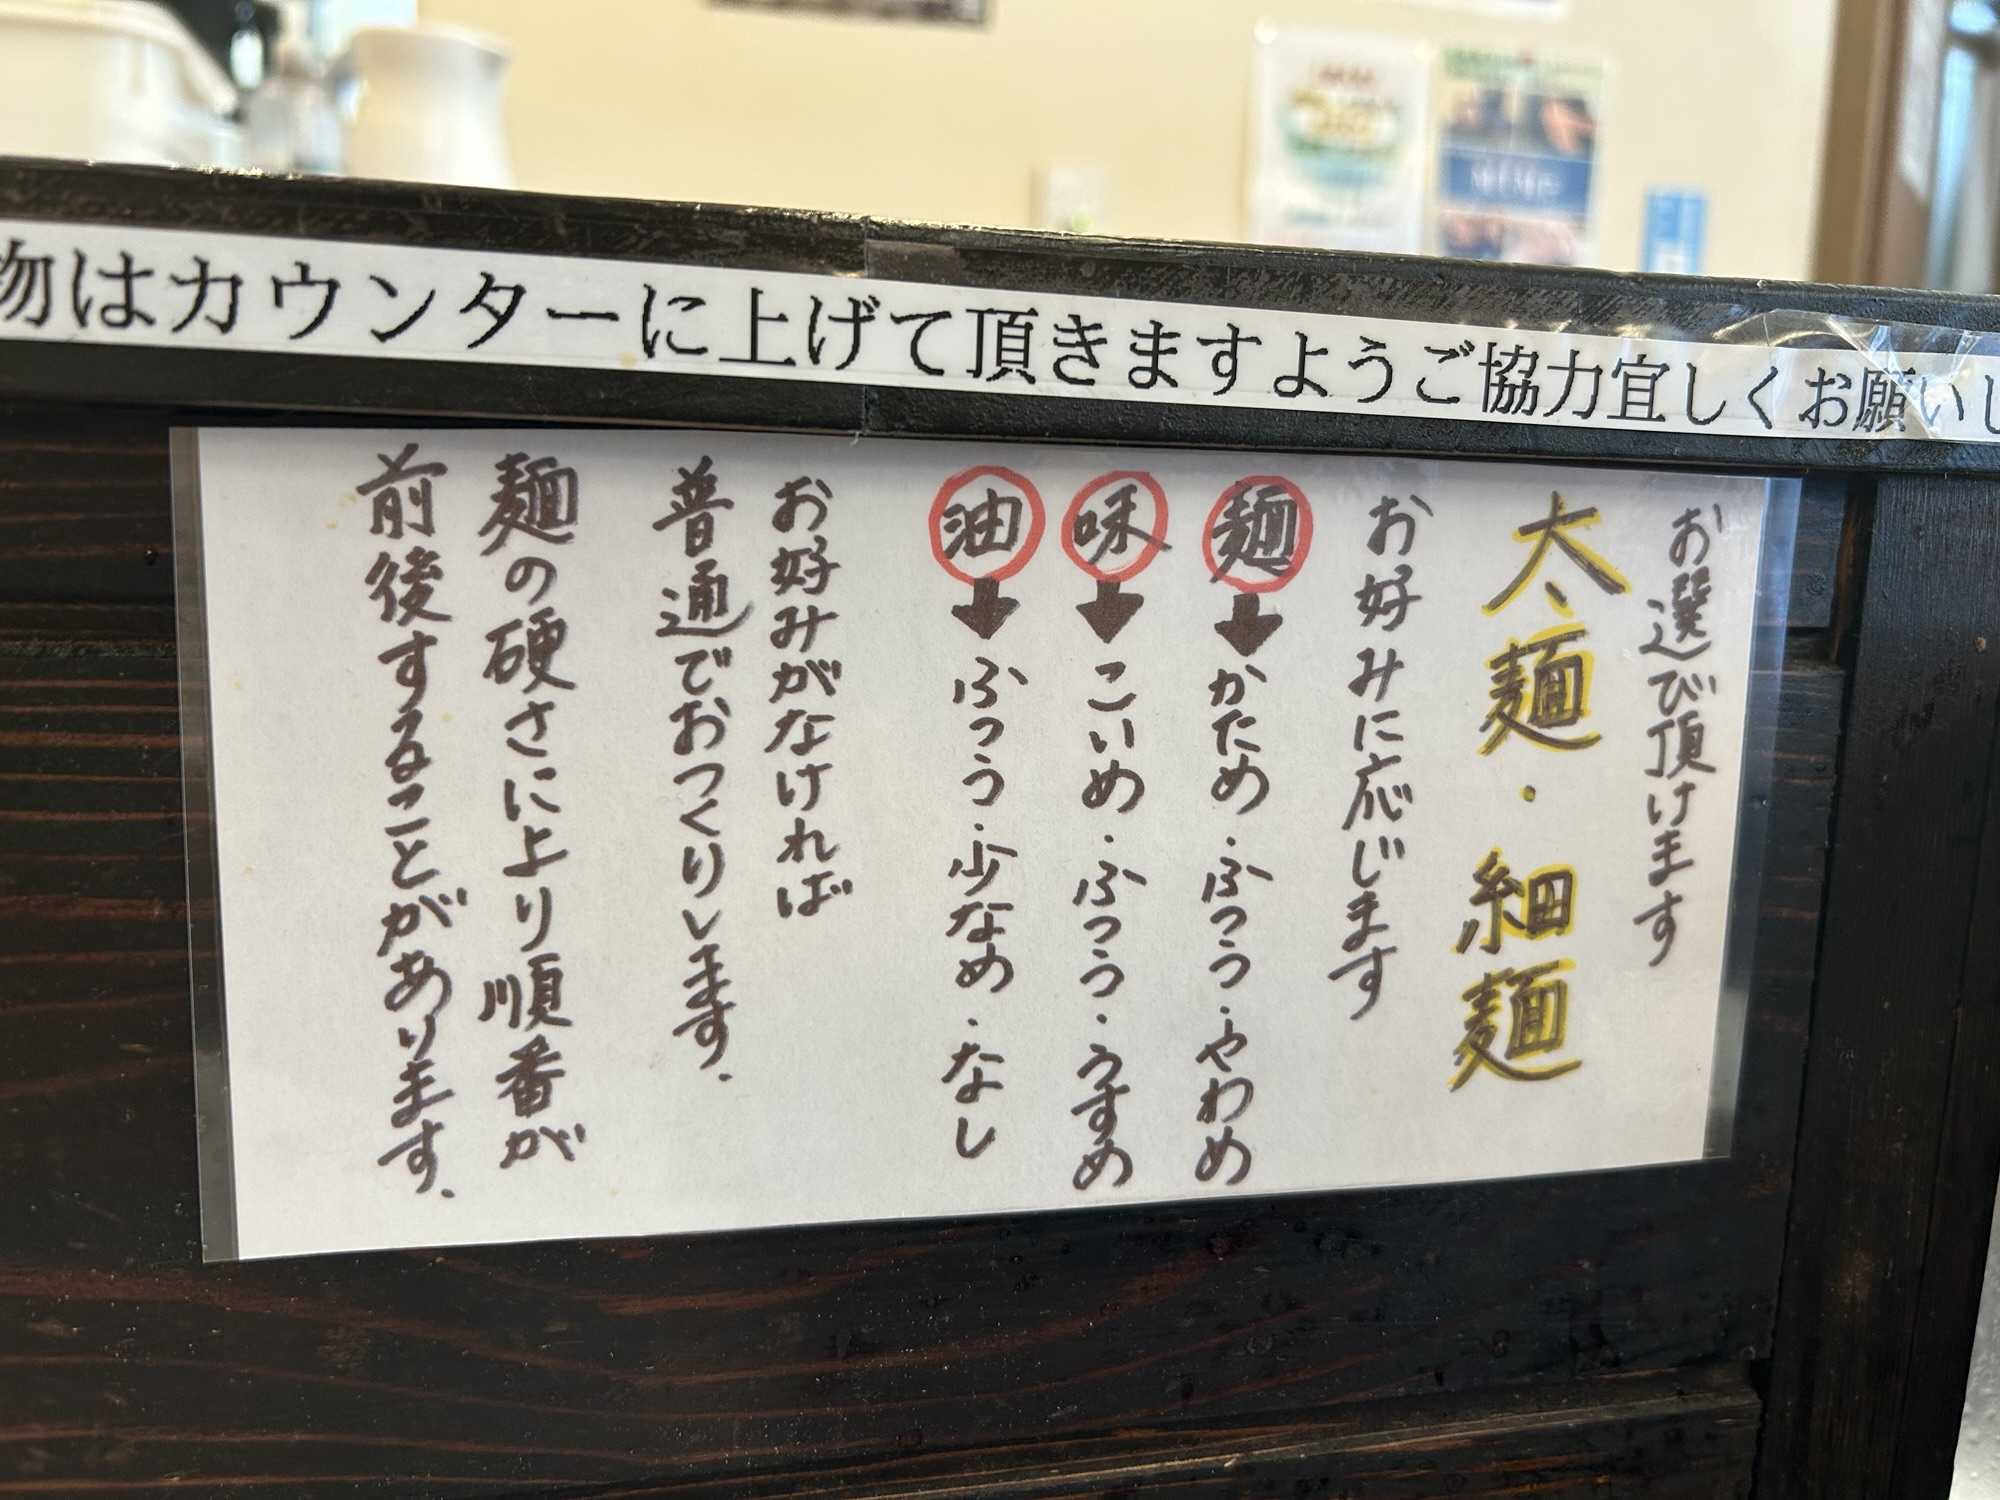 物はカウンターに上げて頂きますようご協力宜しくお願いし
お選び頂けます
太麺・細麺
お好みに応じます
麺➡かため・ふつう・やわめ
味➡こいめ・ふつう・うすめ
油➡ふつう・少なめ・なし
お好みがなければ
普通でおつくりします.
麺の硬さにより順番が
前後することがあります.